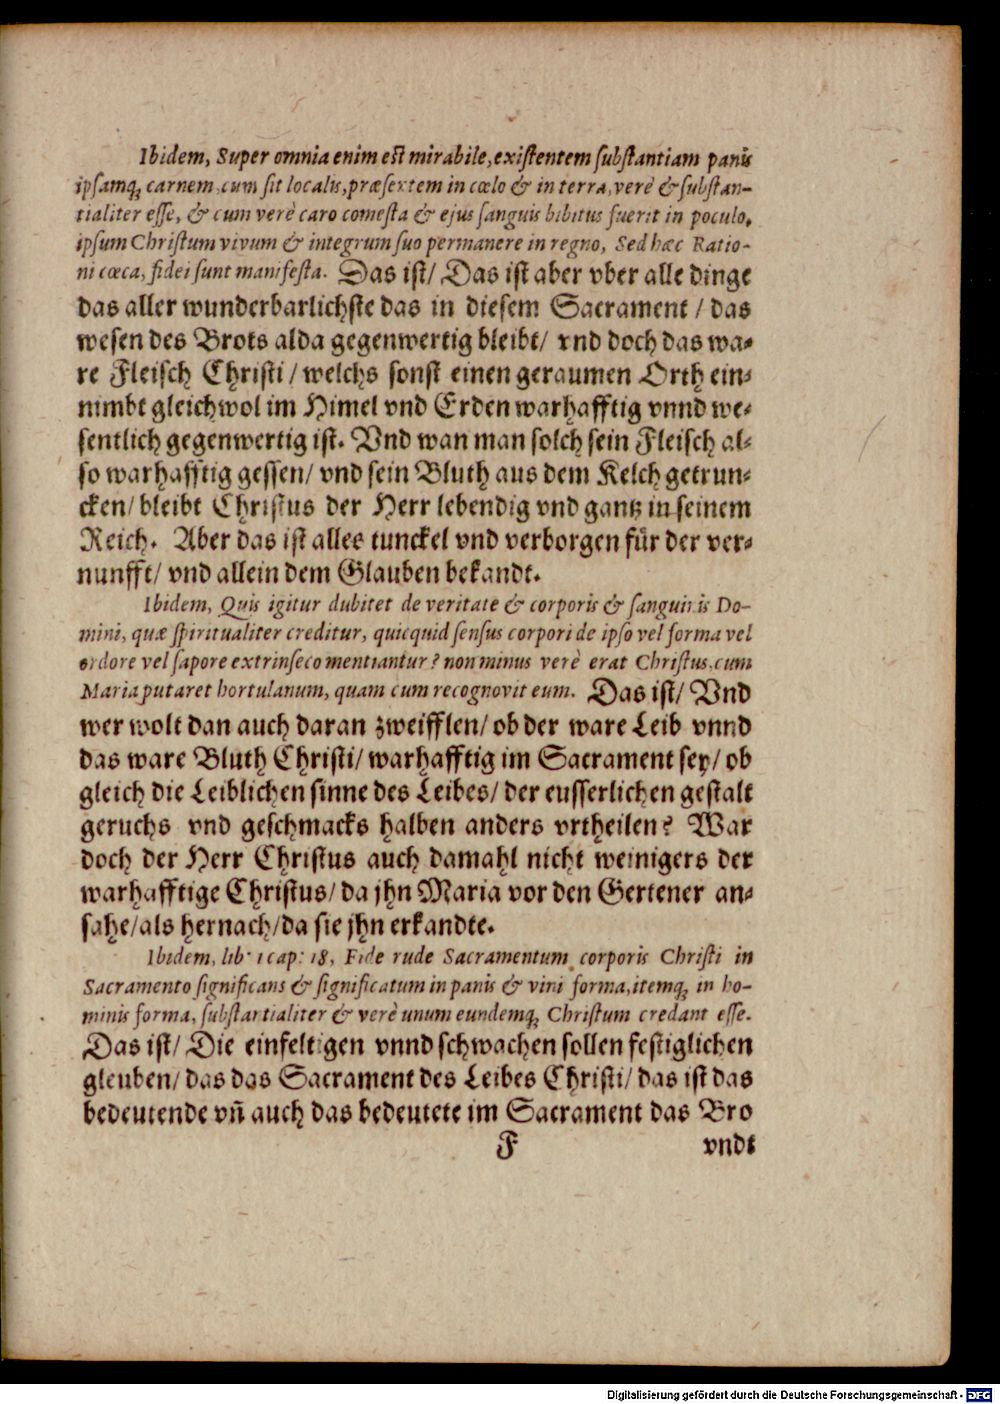 Ibidem, Super omnia enim est mirabile, existentem ſubſtantiam panis
ipſamq́; carnem, cum ſit localis, præſertem in cœlo & in terra, verè & ſubſtan-
tialiter eſſe, & cum verè caro comeſta & ejus ſanguis bibitus fuerit in poculo,
ipſum Chriſtum vivum & integrum ſuo permanere in regno, Sed hæc Ratio-
ni cæca, fidei ſunt manifeſta. Das iſt/ Das iſt aber vber alle dinge
das aller wunderbarlichſte das in dieſem Sacrament / das
weſen des Brots alda gegenwertig bleibt/ vnd doch das wa-
re Fleiſch Chriſti / welchs ſonſt einen geraumen Orth ein-
nimbt gleichwol im Himel vnd Erden warhafftig vnnd we-
ſentlich gegenwertig iſt. Vnd wan man ſolch ſein Fleiſch al-
ſo warhafftig geſſen/ vnd ſein Bluth aus dem Kelch getrun-
cken/ bleibt Chriſtus der Herr lebendig vnd gantz in ſeinem
Reich. Aber das iſt alles tunckel vnd verborgen für der ver-
nunfft/ vnd allein dem Glauben bekandt.
Ibidem, Quis igitur dubitet de veritate & corporis & ſanguinis Do-
mini, quæ ſpiritualiter creditur, quicquid ſenſus corpori de ipſo vel forma vel
ordore vel ſapore extrinſeco mentiantur? non minus verè erat Chriſtus, cum
Maria putaret hortulanum, quam cum recognovit eum. Das iſt/ Vnd
wer wolt dan auch daran zweifflen/ ob der ware Leib vnnd
das ware Bluth Chriſti/ warhafftig im Sacrament ſey/ ob
gleich die Leiblichen ſinne des Leibes/ der euſſerlichen geſtalt
geruchs vnd geſchmacks halben anders vrtheilen? War
doch der Herr Chriſtus auch damahl nicht weinigers der
warhafftige Chriſtus/ da jhn Maria vor den Gertener an-
ſahe/ als hernach/ da ſie jhn erkandte.
Ibidem, lib: 1 cap: 18, Fide rude Sacramentum corporis Chriſti in
Sacramento ſignificans & ſignificatum in panis & vini forma, itemq́; in ho-
minis forma, ſubſtartialiter & verè unum eundemq́; Chriſtum credant eſſe.
Das iſt/ Die einfeltigen vnnd ſchwachen ſollen feſtiglichen
gleuben/ das das Sacrament des Leibes Chriſti/ das iſt das
bedeutende vn̄ auch das bedeutete im Sacrament das Bro
F vndt
Digitalisierung gefördert durch die Deutsche Forschungsgemeinschaft - DFG